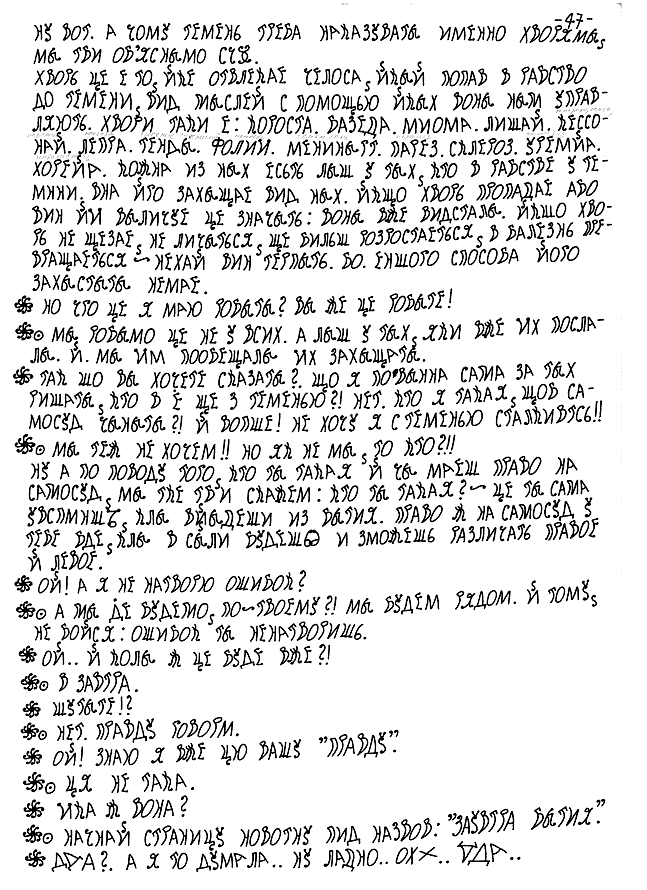 -47-
НУ ВОТ. А ЧОМУ ТЕМЕНЬ ТРЕБА НАКАЗУВАТЫ ИМЕННО ХВОРЯМЫ,
МЫ ТБИ ОБ'ЯСНЫМО СЧЯ.
ХВОРЬ ЦЕ Е ТО, ЙКЕ ОТВЛЕКАЕ ЧЕЛОСА, ЙКЫЙ ПОПАВ В РАБСТВО
ДО ТЕМЕНИ, ВИД МЫСЛЕЙ С ПОМОЩЬЮ ЙКЫХ ВОНА НЫМ УПРАВ-
ЛЯЮТЬ. ХВОРИ ТАКИ Е: КОРОСТА. БАЗЕДА. МИОМА. ЛИШАЙ. ПЕССО-
НАЙ. ЛЕПРА. ГЕНДЫ. ФОЛИИ. МЕНИНЫГТ. ПАРЕЗ. СКЛЕРОЗ. УРЕМИЯ.
ХОРЕЙЯ. КОЖНА ИЗ НЫХ ЕСЬТЬ ЛЫШ У ТЫХ, КТО В РАБСТВЕ У ТЕ-
МИНИ. ВНА ЙГО ЗАХЫЩАЕ ВИД НЫХ. ЙКЩО ХВОРЬ ПРОПАДАЕ АБО
ВИН ЙИ ВЫЛИЧУЕ ЦЕ ЗНАЧЫТЬ: ВОНА ВЖЕ ВИДСТАЛА. ЙКЩО ХВО-
РЬ НЕ ЩЕЗАЕ, НЕ ЛИЧЫТЬСЯ, ЩЕ БИЛЬШ РОЗРОСТАЕТЬСЯ, В БАЛЕЗНЬ ПРЕ-
ВРАЩАЕТЬСЯ ~ НЕХАЙ ВИН ТЕРПЫТЬ. БО. ЕНШОГО СПОСОБА ЙОГО
ЗАХЫСТЫТЫ НЕМАЕ.
НО ЧТО ЦЕ Я МАЮ РОБЫТЫ? ВЫ ЖЕ ЦЕ РОБЫТЕ!
МЫ. РОБЫМО ЦЕ НЕ У ВСИХ. А ЛЫШ У ТЫХ, ЯКИ ВЖЕ ИХ ПОСЛА-
ЛЫ. Й. МЫ ИМ ПООБЕЩАЛЫ ИХ ЗАХЫЩАТЫ.
ТАК ШО ВЫ ХОЧЕТЕ СКАЗАТЫ?. ЩО Я ПОВЫННА САМА ЗА ТЫХ
РИШАТЫ, КТО В Е ЩЕ З ТЕМЕНЬЮ?! НЕТ. КТО Я ТАКАЯ, ЩОБ СА-
МОСУД ЧЫНЫТЫ?! Й ВОПШЕ! НЕ ХОЧУ Я С ТЕМЕНЬЮ СТАЛКИВТСЬ!!
МЫ ТЕЖ НЕ ХОЧЕМ!! НО ЯК НЕ МЫ, ТО КТО?!!
НУ А ПО ПОВОДУ ТОГО, КТО ТЫ ТАКАЯ Й ЧЫ МАЕШ ПРАВО НА
САМОСУД, МЫ ТКЕ ТБИ СКАЖЕМ: КТО ТЫ ТАКАЯ? ~ ЦЕ ТЫ САМА
УВСПМНИШ, КЛЫ ВЫЫДЕШИ ИЗ БЫТИЯ. ПРАВО Ж НА САМОСУД У
ТЕБЕ БДЕ, КЛЫ В СЫЛИ БУДЕШ И ЗМОЖЕШЬ РАЗЛИЧАТЬ ПРАВОЕ
Й ЛЕВОЕ.
ОЙ! А Я НЕ НАТВОРЮ ОШИБОК?
А МЫ ДЕ БУДЕМО, ПО~ТВОЕМУ?! МЫ БУДЕМ РЯДОМ. Й ТОМУ,
НЕ БОЙСЯ: ОШИБОК ТЫ НЕНАТВОРИШЬ.
ОЙ.. Й КОЛЫ Ж ЦЕ БУДЕ ВЖЕ?!
В ЗАВТРА.
ШУТЫТЕ!?
НЕТ. ПРАВДУ ГОВОРМ.
ОЙ! ЗНАЮ Я ВЖЕ ЦЮ ВАШУ "ПРАВДУ".
ЦЯ НЕ ТАКА.
ЙКА Ж ВОНА?
НАЧНАЙ СТРАНИЦУ НОВОТНУ ПИД НАЗВОВ: "ЗАУВТРА БЫТИЯ".
ДРА?. А Я ТО ДУМАЛА.. НУ ЛАДНО.. ОХ..